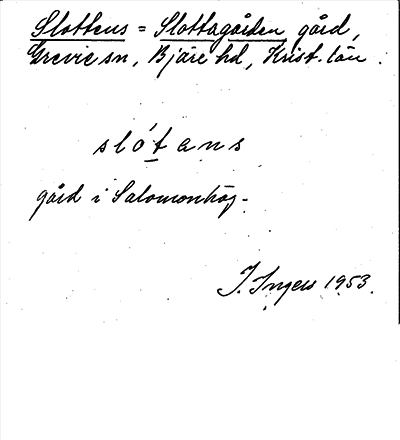 Slottens = Slottagården gård,
Grevie sn, Bjäre hd, Krist. län.
slótans
gård i Salomonhög.
I. Ingers 1953.